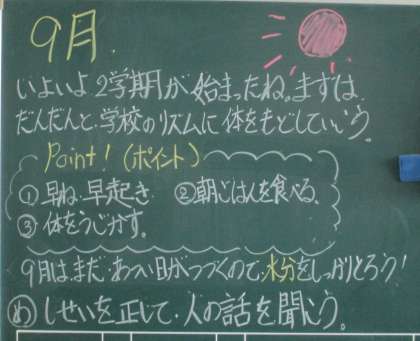 9月
いよいよ2学期が始まったね。まずは
だんだんと、学校のリズムに体をもどしていこう。
Point!(ポイント)
①早ね・早起き ②朝ごはんを食べる
③体をうごかす。
9月は、まだ、あつい日がつづくので、水分をしっかりとろう!
め しせいを正して、人の話を聞こう。